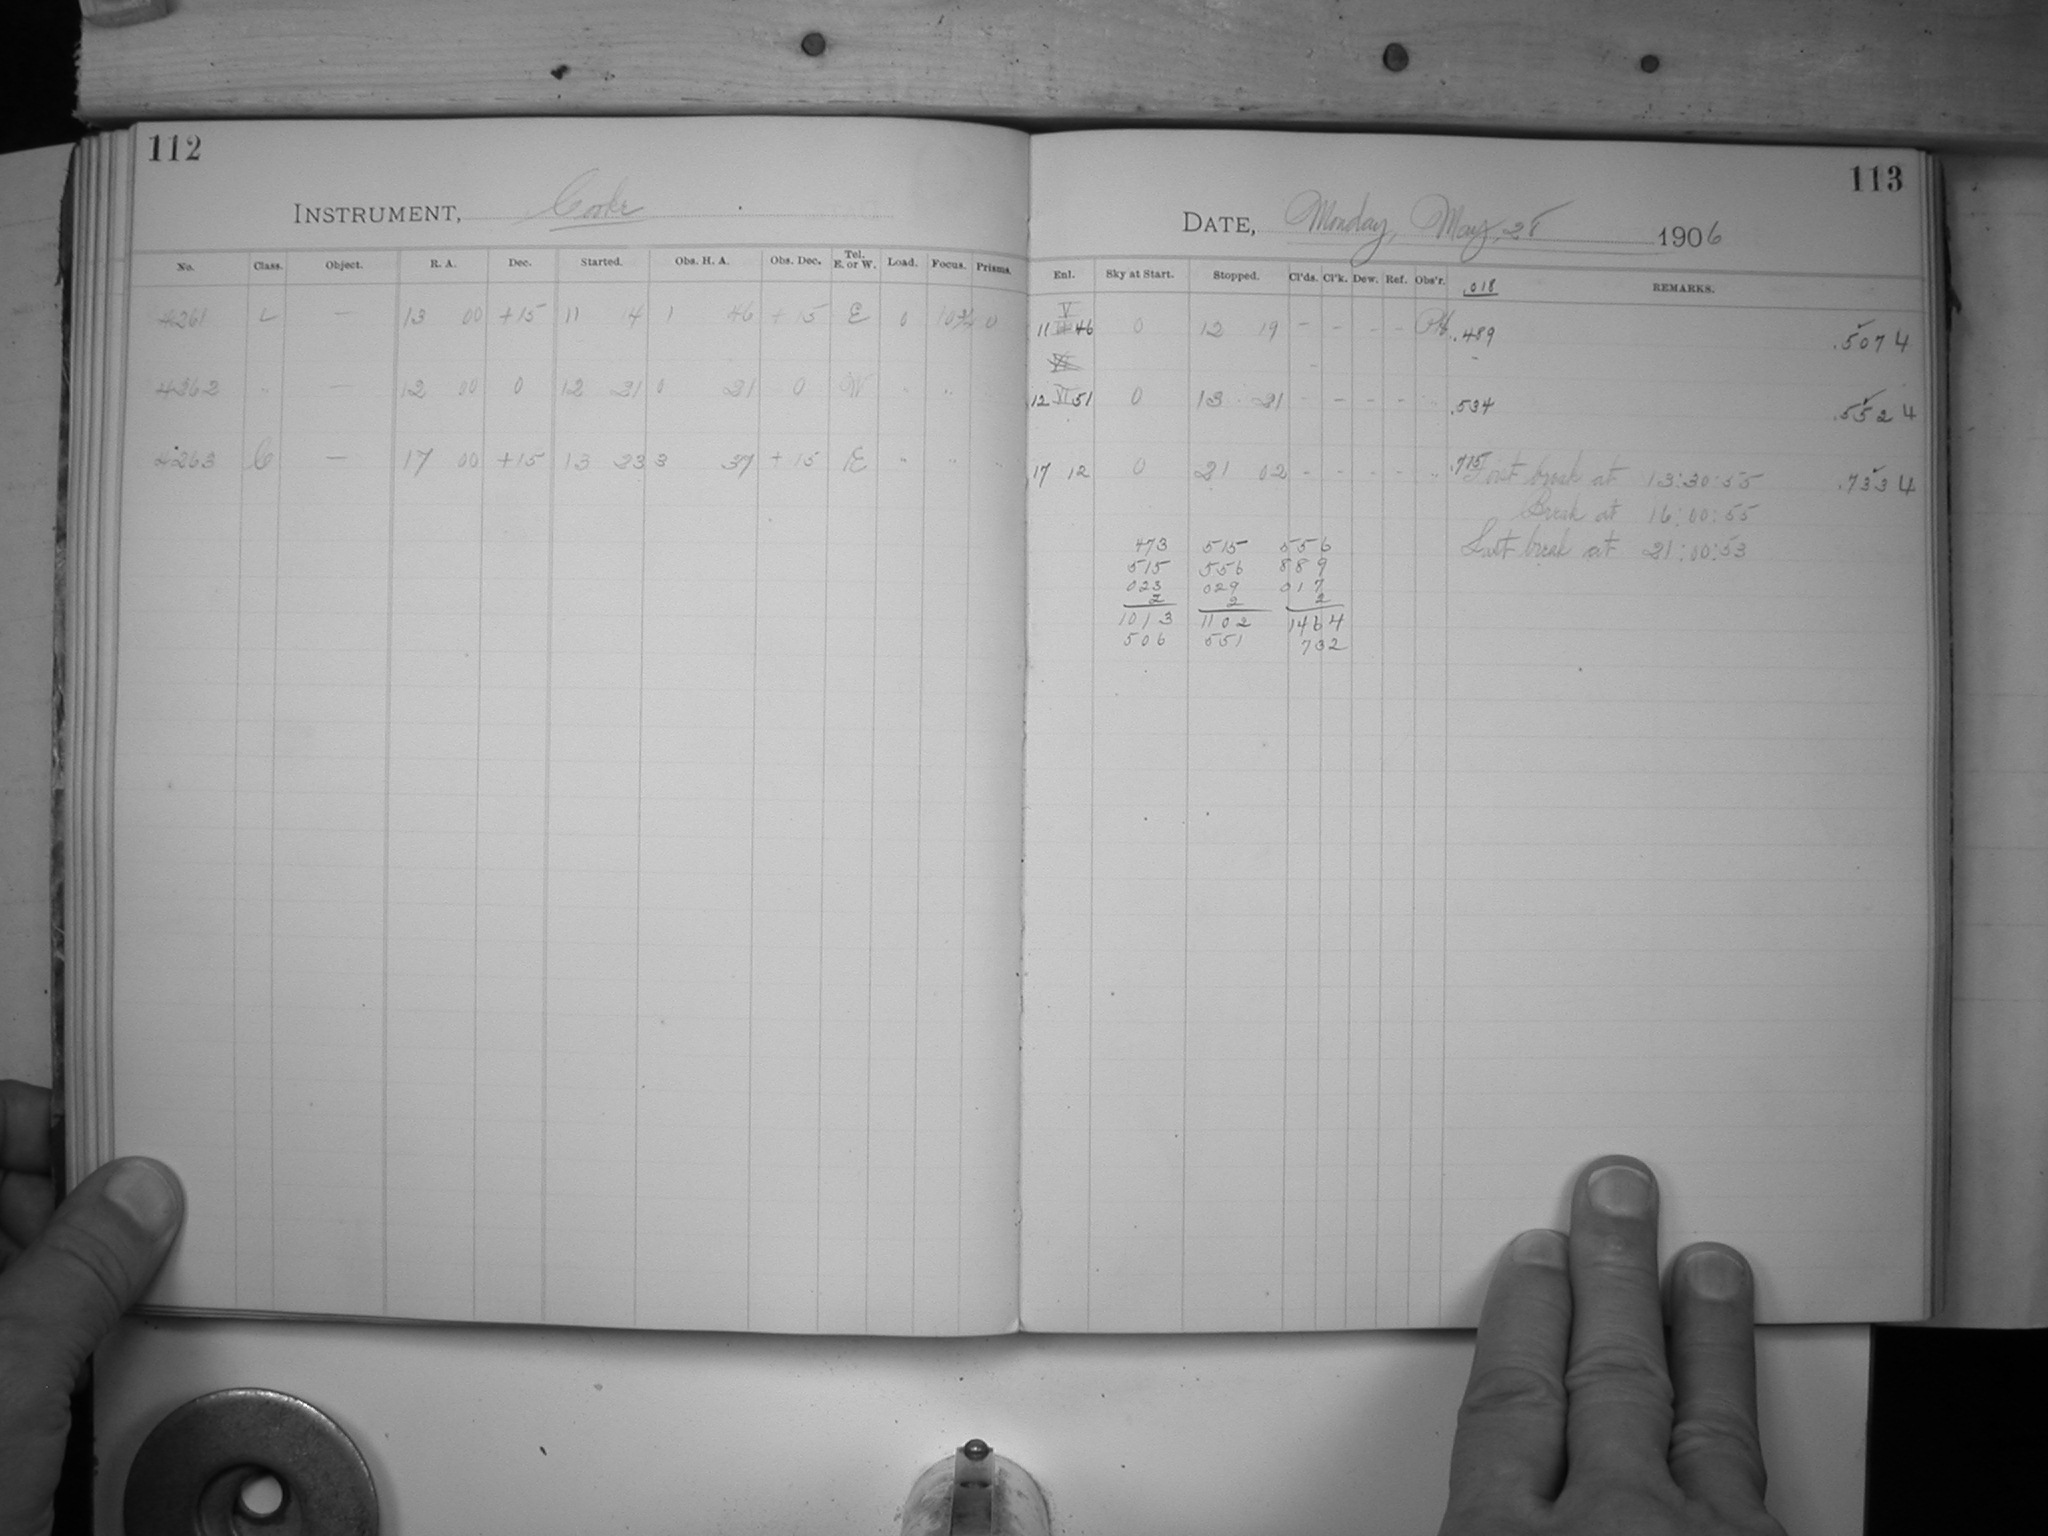 112
INSTRUMENT, Cooke
No. Class. Object. R. A. Dec. Started. Obs. H. A. Obs. Dec. Tel. E. or W. Load. Focus. Prisms.
4261 L — 13 00 +15 11 14 1 46 +15 E 0 10 3/4 0
4262 " — 12 00 0 12 21 0 21 0 W " "
4263 C — 17 00 +15 13 23 3 37 +15 E " " "
113
DATE, Monday, May, 28 1906
Enl. Sky at Start. Stopped. Cl'ds. Cl'k. Dew. Ref. Obs'r. .018 REMARKS.
V
11 46 0 12 19 - - - - .489 .5074
12 VI 51 0 13 21 - - - - " .534 .5524
17 12 0 21 02 - - - - " .715 First break at 13:30:55 .7334
Break at 16:00:55
Last break at 21:00:53
473 515 556
515 556 889
023 029 017
2 2 2
1013 1102 1464
506 551 732